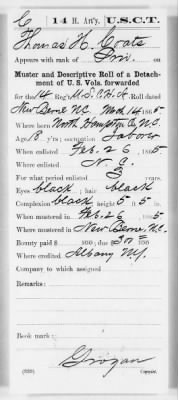 C 14 H. Art'y. U.S.C.T.
Thomas H. Coats
Appears with rank of Priv. on
Muster and Descriptive Roll of a Detach-
ment of U. S. Vols. forwarded
for the 14 Reg't U.S.C.H.A. Roll dated
New Berne N.C. Mch 14 1865
Where born North Hampton Co, N.C.
Age 18 y'rs; occupation Labor
When enlisted Feb. 26, 1865
Where enlisted N. C.
For what period enlisted 3 years.
Eyes black; hair black
Complexion black height 5 ft. 5 in.
When mustered in Feb. 26, 1865
Where mustered in New Berne, N.C.
Bounty paid $ 100; due $ 100
Where credited Albany NY.
Company to which assigned
Remarks:
Book mark:
Grogan
(339) Copyist.